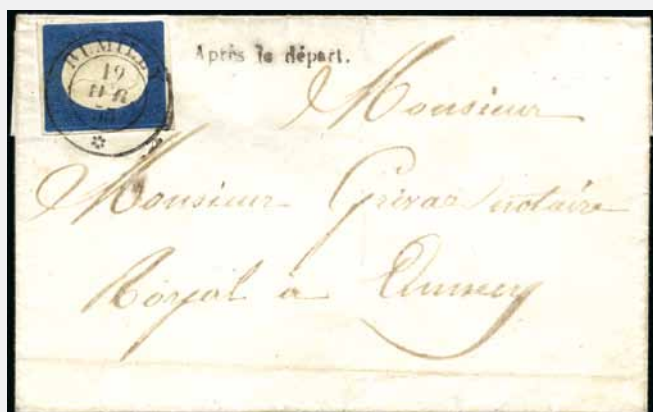 RUMILLY
19
Après le départ.
Monsieur
Monsieur notaire
Royal à Annecy